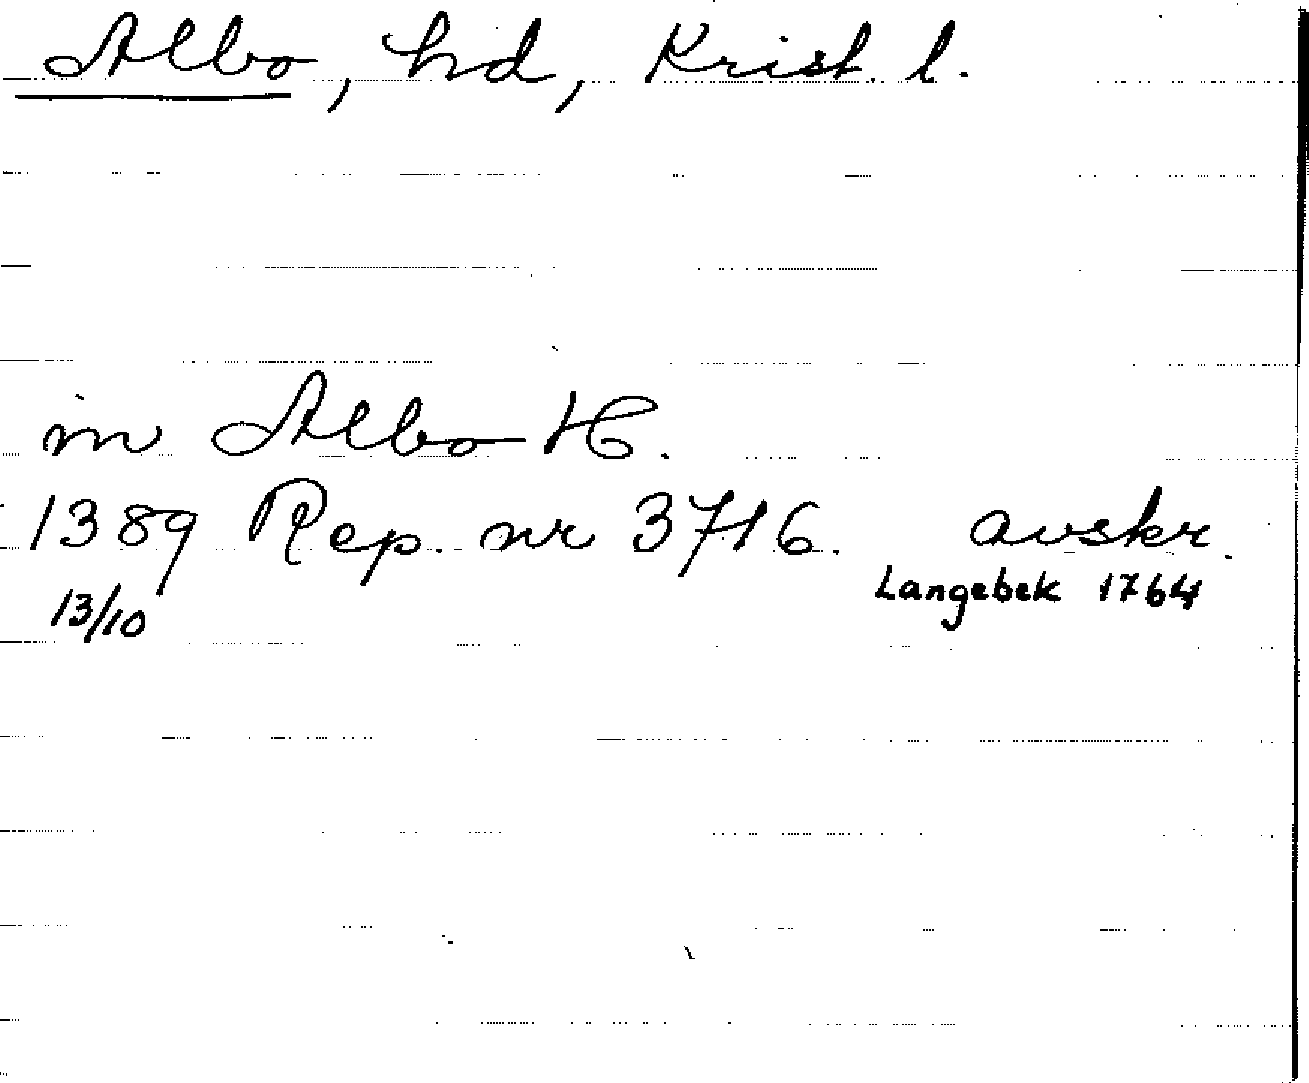 Albo, hd, Krist. l.
in Albo H.
1389 Rep. nr 3716. avskr.
13/10 Langebek 1764